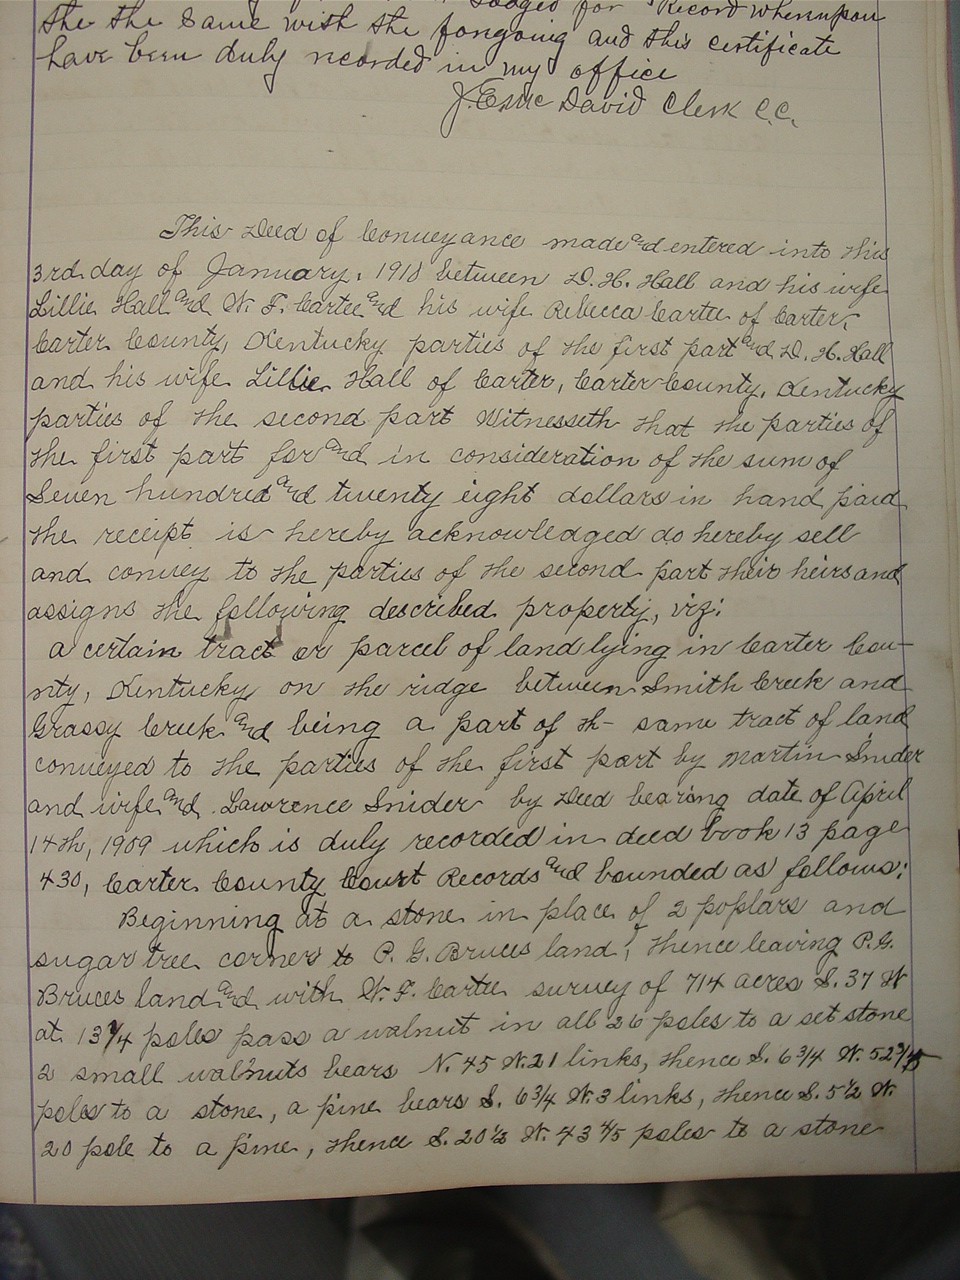 lodged for Record whereupon
the the same with the foregoing and this certificate
have been duly recorded in my office
J. Esue David Clerk C.C.
This Deed of Conveyance made and entered into this
3rd day of January, 1910 between D. H. Hall and his wife
Lillie Hall and W. F. Cartee and his wife Rebecca Cartee of Carter,
Carter County, Kentucky parties of the first part and D. H. Hall
and his wife Lillie Hall of Carter, Carter County, Kentucky
parties of the second part Witnesseth that the parties of
the first part for and in consideration of the sum of
Seven hundred and twenty eight dollars in hand paid
the receipt is hereby acknowledged do hereby sell
and convey to the parties of the second part their heirs and
assigns the following described property, viz:
a certain tract or parcel of land lying in Carter Cou-
nty, Kentucky on the ridge between Smith Creek and
Grassy Creek and being a part of th- same tract of land
conveyed to the parties of the first part by Martin Snider
and wife and Lawrence Snider by Deed bearing date of April
14th, 1909 which is duly recorded in deed book 13 page
430, Carter County Court Records and bounded as follows:
Beginning at a stone in place of 2 poplars and
sugar tree corner to P. G. Bruces land, thence leaving P.G.
Bruces land and with W. F. Cartee survey of 714 acres S. 37 W
at 13 3/4 poles pass a walnut in all 26 poles to a set stone
2 small walnuts bears N. 45 W. 21 links, thence S. 6 3/4 W. 52 3/5
poles to a stone, a pine bears S. 6 3/4 W. 3 links, thence S. 5 1/2 W.
20 pole to a pine, thence S. 20 1/2 W. 43 4/5 poles to a stone